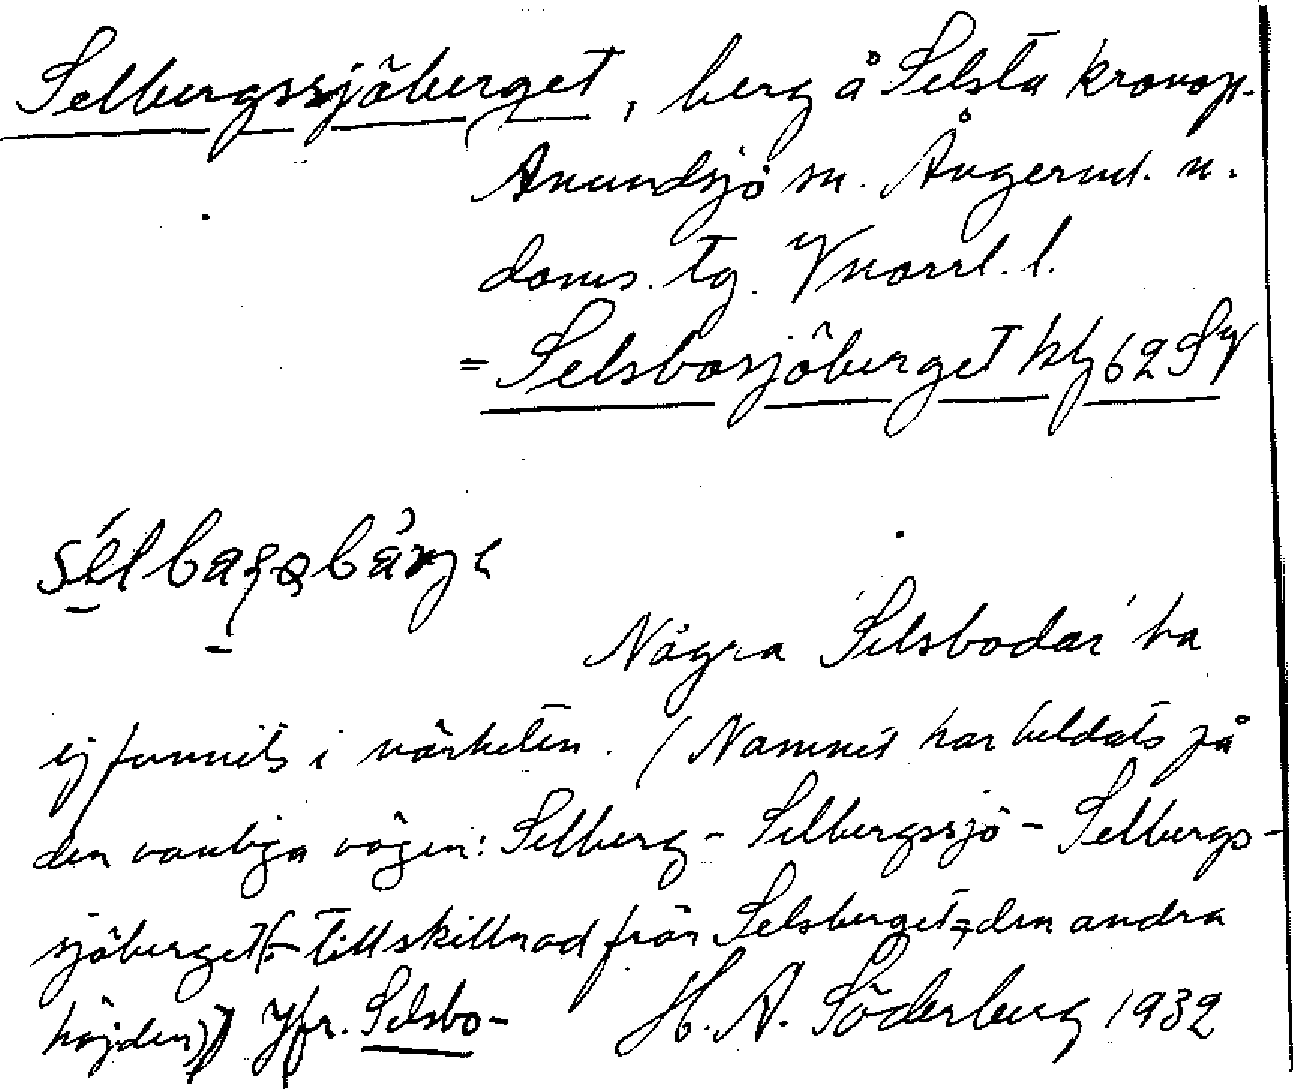 Selbergssjöberget, berg å Selsta kronop.
Anundsjö sn. Ångerml. n.
doms. tg. Vnorrl. l.
= Selsbosjöberget kbl 62 SV
Några 'Selsbodar' ha
ej funnits i närheten. (Namnet har bildats på
den vanliga vägen: Selberg - Selbergssjö - Selbergs-
sjöberget (- till skillnad från Selsberget, den andra
höjden)) Jfr. Selsbo-
H. A. Söderberg 1932